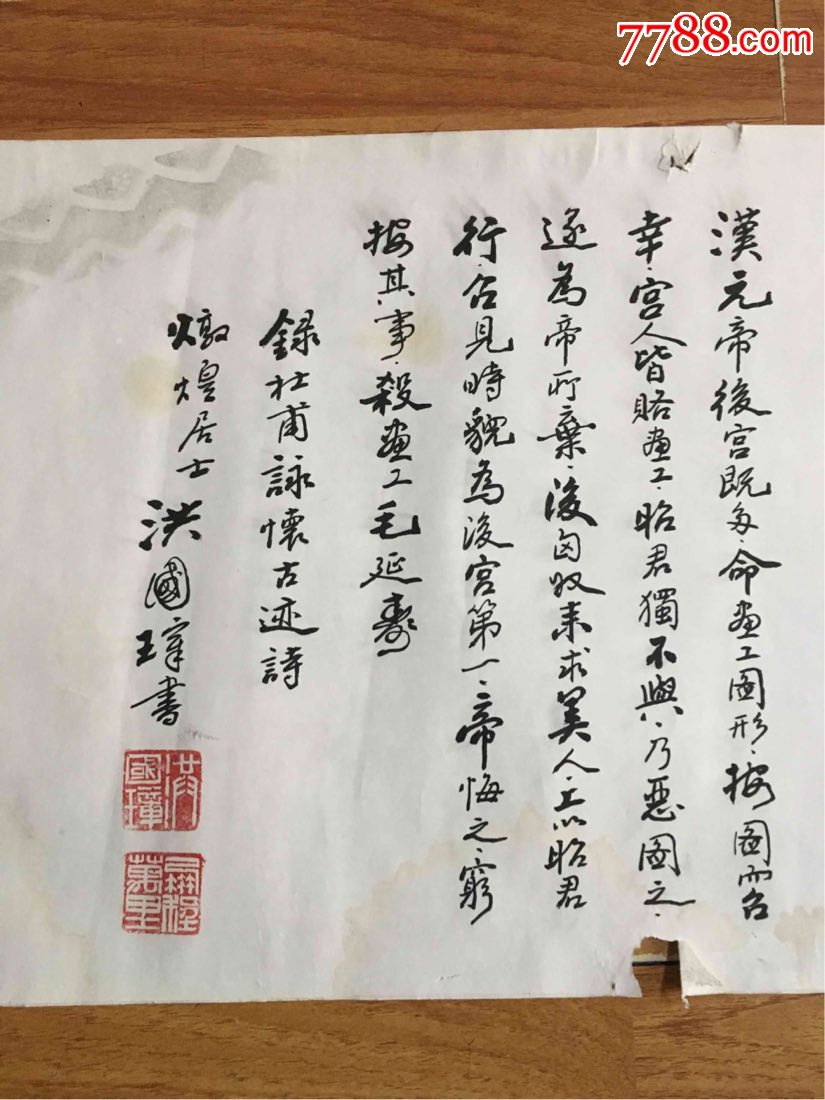 7788.com
漢元帝後宮既多·命畫工圖形·按圖而召
幸·宮人皆賂畫工·昭君獨不與·乃惡圖之·
遂為帝所棄·後匈奴來求美人·上以昭君
行·召見時貌為後宮第一·帝悔之·窮
按其事·殺畫工毛延壽
錄杜甫詠懷古迹詩
燉煌居士洪國璋書
洪國璋
萬里